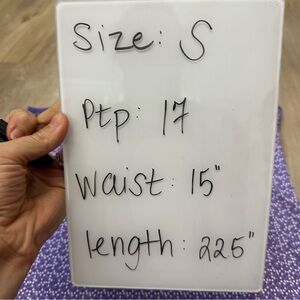 Size: S
Ptp: 17
Waist: 15"
length: 22.5"